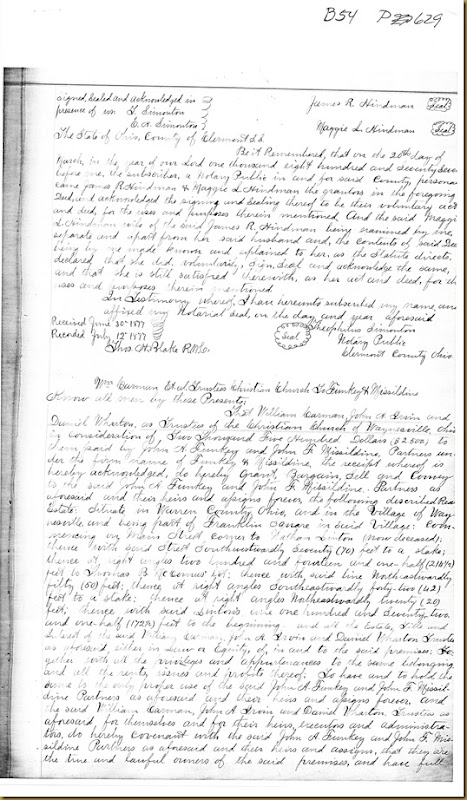 B54 P 629
Signed, Sealed and acknowledged in
presence of us: T. Simonton
James R. Hindman Seal
Maggie L. Hindman Seal
The State of Ohio, County of Clermont S.S.
Be it Remembered, that on the 20th day of
March, in the year of our Lord one thousand eight hundred and seventy
before me, the subscriber, a Notary Public in and for said County, persona
came James R Hindman & Maggie L Hindman the grantors in the foregoing
Deed, and acknowledged the signing and Sealing thereof to be their voluntary act
and deed, for the uses and purposes therein mentioned. And the said Maggie
L Hindman wife of the said James R. Hindman being examined by me,
separate and apart from her said husband and, the contents of said Deed
being by me made known and explained to her, as the Statute directs,
declared, that she did, voluntarily, Sign, Seal and acknowledge the same,
and that she is still satisfied therewith, as her act and deed, for the
uses and purposes therein mentioned
In Testimony whereof, I have hereunto subscribed my name, and
affixed my Notarial Seal, on the day and year aforesaid
Received June 30th 1877
Seal
Theophilus Simonton
Recorded July 12th 1877
Notary Public
Clermont County Ohio
Wm Carman Et al Trustees Christian Church To Funkey & Missildine
Know all men by these Presents,
That William Carman, John A Irvin and
Daniel Wharton, as Trustees of the Christian Church of Waynesville, Ohio
in Consideration of Two Thousand Five Hundred Dollars ($2500) to
them paid by John A Funkey and John F. Missildine, Partners un-
der the firm name of Funkey & Missildine, the receipt whereof is
hereby acknowledged, do hereby Grant, Bargain, Sell and Convey
to the said John A Funkey and John F. Missildine Partners as
aforesaid and their heirs and assigns forever, the following described Real
Estate: Situate in Warren County, Ohio, and in the Village of Way-
nesville and being part of Franklin Square in said Village: Com-
mencing on Main Street corner to Nathan Linton (now deceased);
thence with said Street Southwestwardly Seventy (70) feet to a stake;
thence at right angles two hundred and fourteen and one-half (214½)
feet to Thomas B. lot; thence with said line Northeastwardly
fifty (50) feet; thence at right angles Southeastwardly forty-two (42)
feet to a stake; thence at right angles Northeastwardly twenty (20)
feet; thence with said Linton's line one hundred and seventy two
and one-half (172½) feet to the beginning. and all the Estate, Title and
Interest of the said William Carman, John A. Irvin and Daniel Wharton Trustees
as aforesaid, either in Law or Equity, of, in and to the said premises; To-
gether with all the privileges and appurtenances to the same belonging
and all the rents, issues and profits thereof; To have and to hold the
same to the only proper use of the said John A. Funkey and John F. Missil-
dine Partners as aforesaid and their heirs and assigns forever, And
the said William Carman, John A Irvin and Daniel Wharton, Trustees as
aforesaid, for themselves and for their heirs, executors and administra-
tors, do hereby Covenant with the said John A. Funkey and John F. Mis-
sildine Partners as aforesaid and their heirs and assigns, that they are
the true and lawful owners of the said premises, and have full